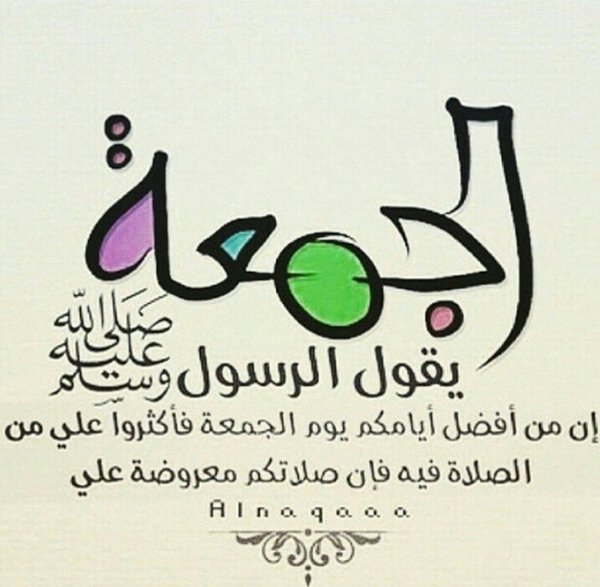 الجمعة
يقول الرسول صلى الله عليه وسلم
إن من أفضل أيامكم يوم الجمعة فأكثروا علي من
الصلاة فيه فإن صلاتكم معروضة علي
Alnaqaaa